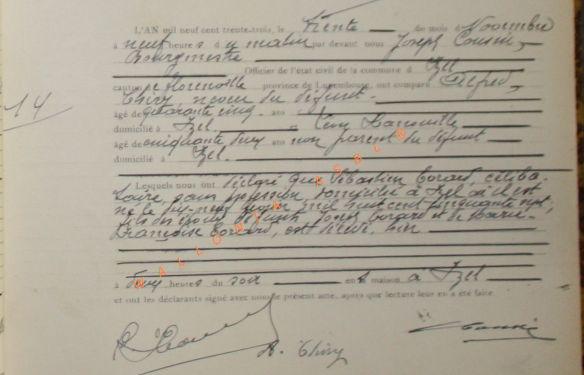 L'AN mil neuf cent trente-trois, le trente du mois de Novembre
à neuf heures du matin par devant nous Joseph Cousin,
Bourgmestre
Officier de l'état civil de la commune d'Izel
canton de Florenville province de Luxembourg, ont comparu Alfred
Thiry, neveu du défunt
14
âgé de quarante cinq ans
domicilié à Izel. Léon
âgé de cinquante deux ans non parent du défunt
domicilié à Izel.
Lesquels nous ont déclaré que Sébastien Goizard, céliba-
taire, sans profession, domicilié à Izel où il est
né le dix-neuf mil huit cent cinquante sept,
fils des époux défunts et de Marie-
Françoise est décédé hier
à deux heures du soir en sa maison à Izel
et ont les déclarants signé avec nous le présent acte, après que lecture leur en a été faite.
WALLONIA ASBL ©
A. Thiry